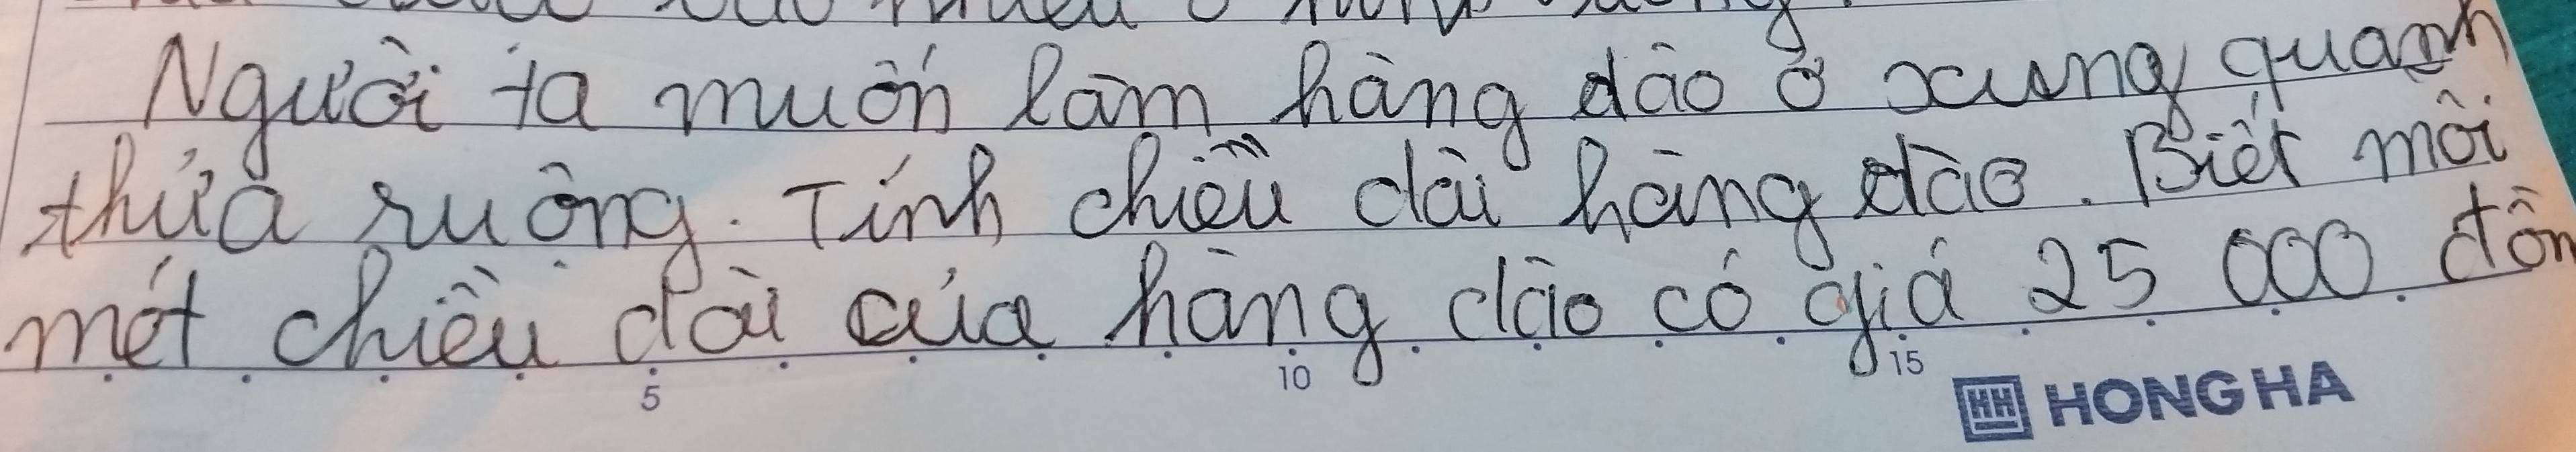 Người ta muốn làm hàng dào ở xung quanh
thửa ruộng. Tính chiều dài hàng dào. Biết mỗi
mét chiều dài của hàng dào có giá 25 000 đồn
5 10 15
HH HONG HA